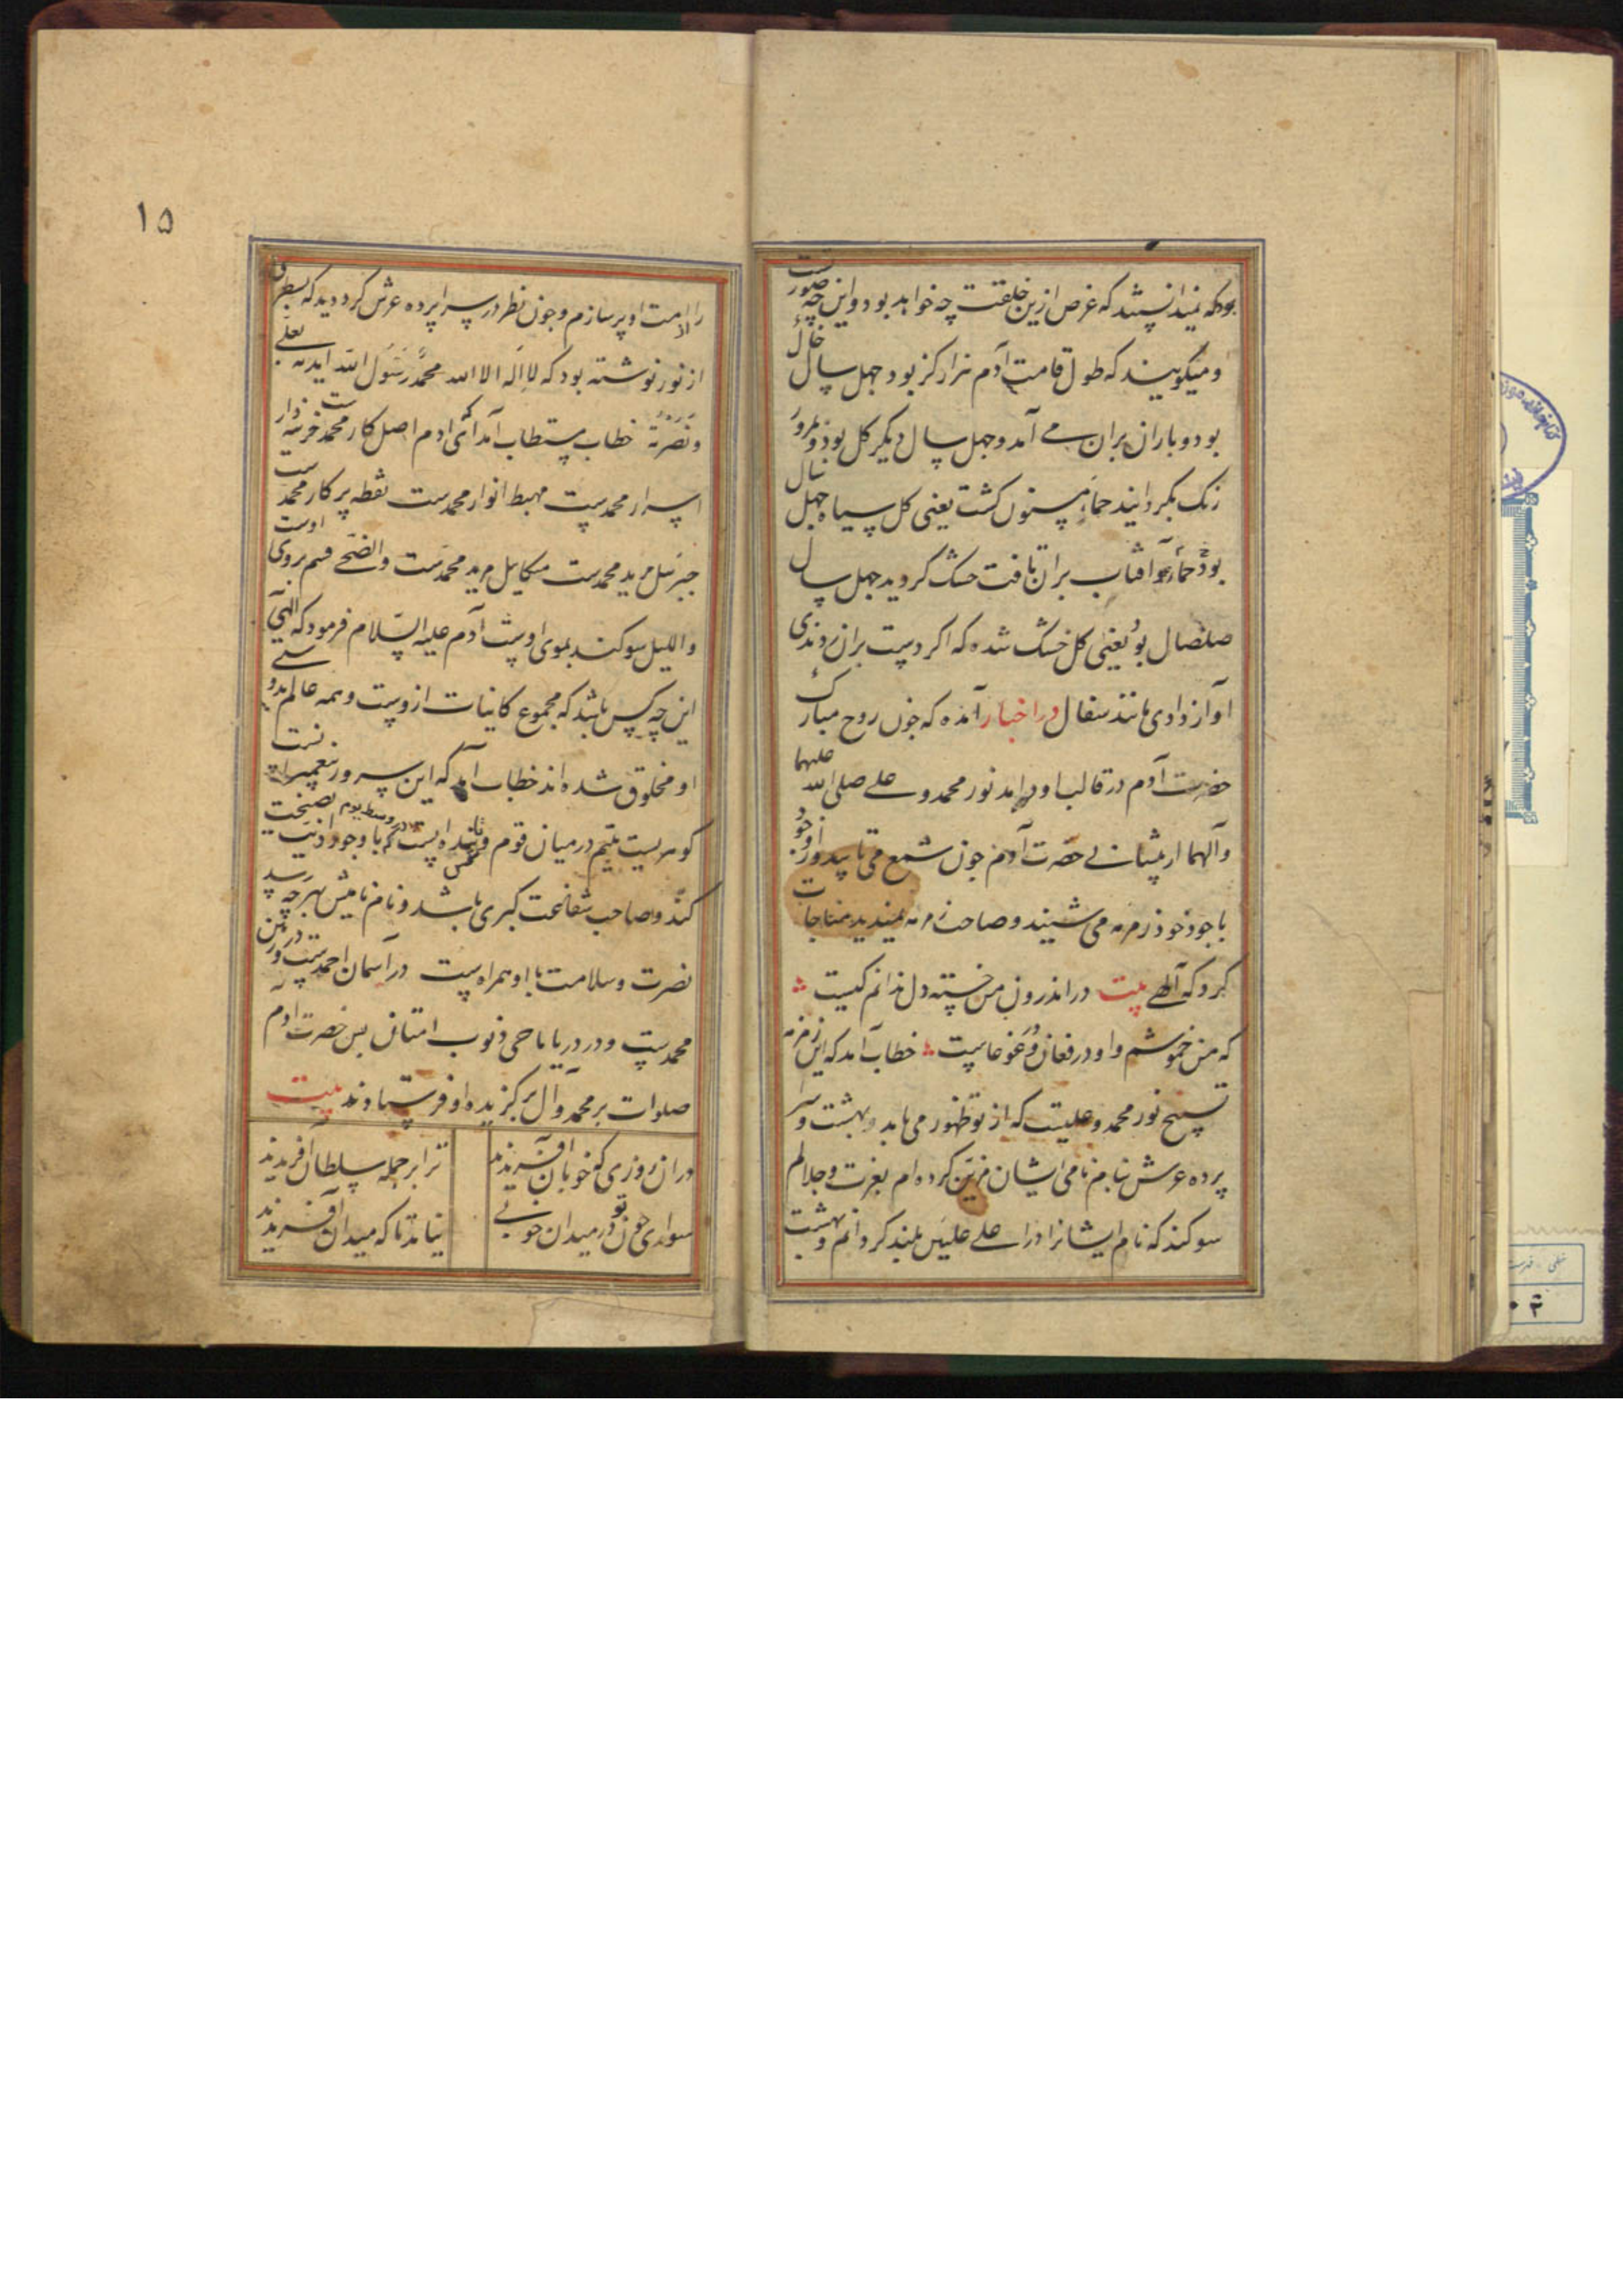 بودکه نمیدانستند که غرض ازین خلقت چه خواهد بود و این چه صورتست
و میگویند که طول قامت آدم هزار کز بود و جهل سال خاک
بود و باران بران می آمد و جهل سال دیکر کل بود و بمرور
رنک بکردانید حماء مسنون کشت یعنی کل سیاه جهل سال
بود حماء و آفتاب بران تافت خشک کردید جهل سال
صلصال بود یعنی کل خشک شده که اکر دست بران زدندی
آواز دادی مانند سفال در اخبار آمده که جون روح مبارک
حضرت آدم در قالب او درآمد نور محمد و علی صلی الله علیهما
و آلهما از پیشانی حضرت آدم جون شمع می تابید و از وجود
باجود خود زمزمه می شنید و صاحب زمزمه نمیدید مناجات
کرد که آلهی بیت در اندرون من خسته دل ندانم کیست
که من خموشم و او در فغان و غوغاست خطاب آمد که این زمزمه
تسبیح نور محمد و علیست که از تو ظهور می یابد و بهشت و سر
پرده عرش بنام نامی ایشان مزین کرده ام بعزت و جلالم
سوکند که نام ایشانرا در اعلی علیین بلند کردانم و بهشت
۱۵
را از امت او پر سازم و جون نظر در سراپرده عرش کرد دید که بسطری
از نور نوشته بود که لا اله الا الله محمد رسول الله ایدته بعلی
و نصرته خطاب مستطاب آمد ای ادم اصل کار محمدست خزینه دار
اسرار محمدست مهبط انوار محمدست نقطه پرکار محمدست
جبرئیل مرید محمدست میکاییل مرید محمدست والضحی قسم بروی اوست
واللیل سوکند بموی اوست آدم علیه السلام فرمود که الهی
این چه کس باشد که مجموع کاینات ازوست و همه عالم بدوستی
او مخلوق شده اند خطاب آمد که این سرور پیغمبرانست
کوهریست یتیم در میان قوم که با وجود اذیت نصیحت
کند و صاحب شفاعت کبری باشد و نام نامیش بهر چه رسد
نصرت و سلامت با او همراهست در آسمان احمدست و در زمین
محمدست و در دریا ماحی ذنوب امتان پس حضرت ادم
صلوات بر محمد و آل برکزیده او فرستادند بیت
دران روزی که خوبان آفریدند ترا بر جمله سلطان آفریدند
سواری جون تو در میدان خوبی نیاند تا که میدان آفریدند